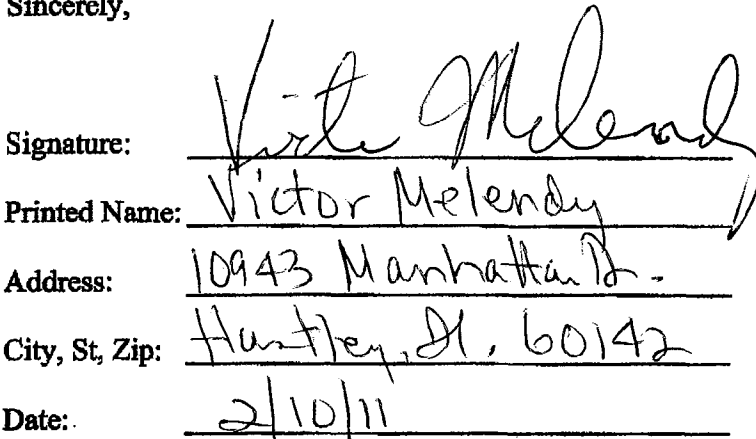 Sincerely,
Signature: Victor Melendy
Printed Name: Victor Melendy
Address: 10943 Manhattan Dr.
City, St, Zip: Huntley, Il. 60142
Date: 2/10/11